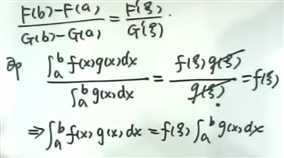 \frac{F(b)-F(a)}{G(b)-G(a)} = \frac{F'(ξ)}{G'(ξ)}.
即 \frac{\int_a^b f(x)g(x)dx}{\int_a^b g(x)dx} = \frac{f(ξ)g(ξ)}{g(ξ)} = f(ξ)
⇒ \int_a^b f(x)g(x)dx = f(ξ)\int_a^b g(x)dx